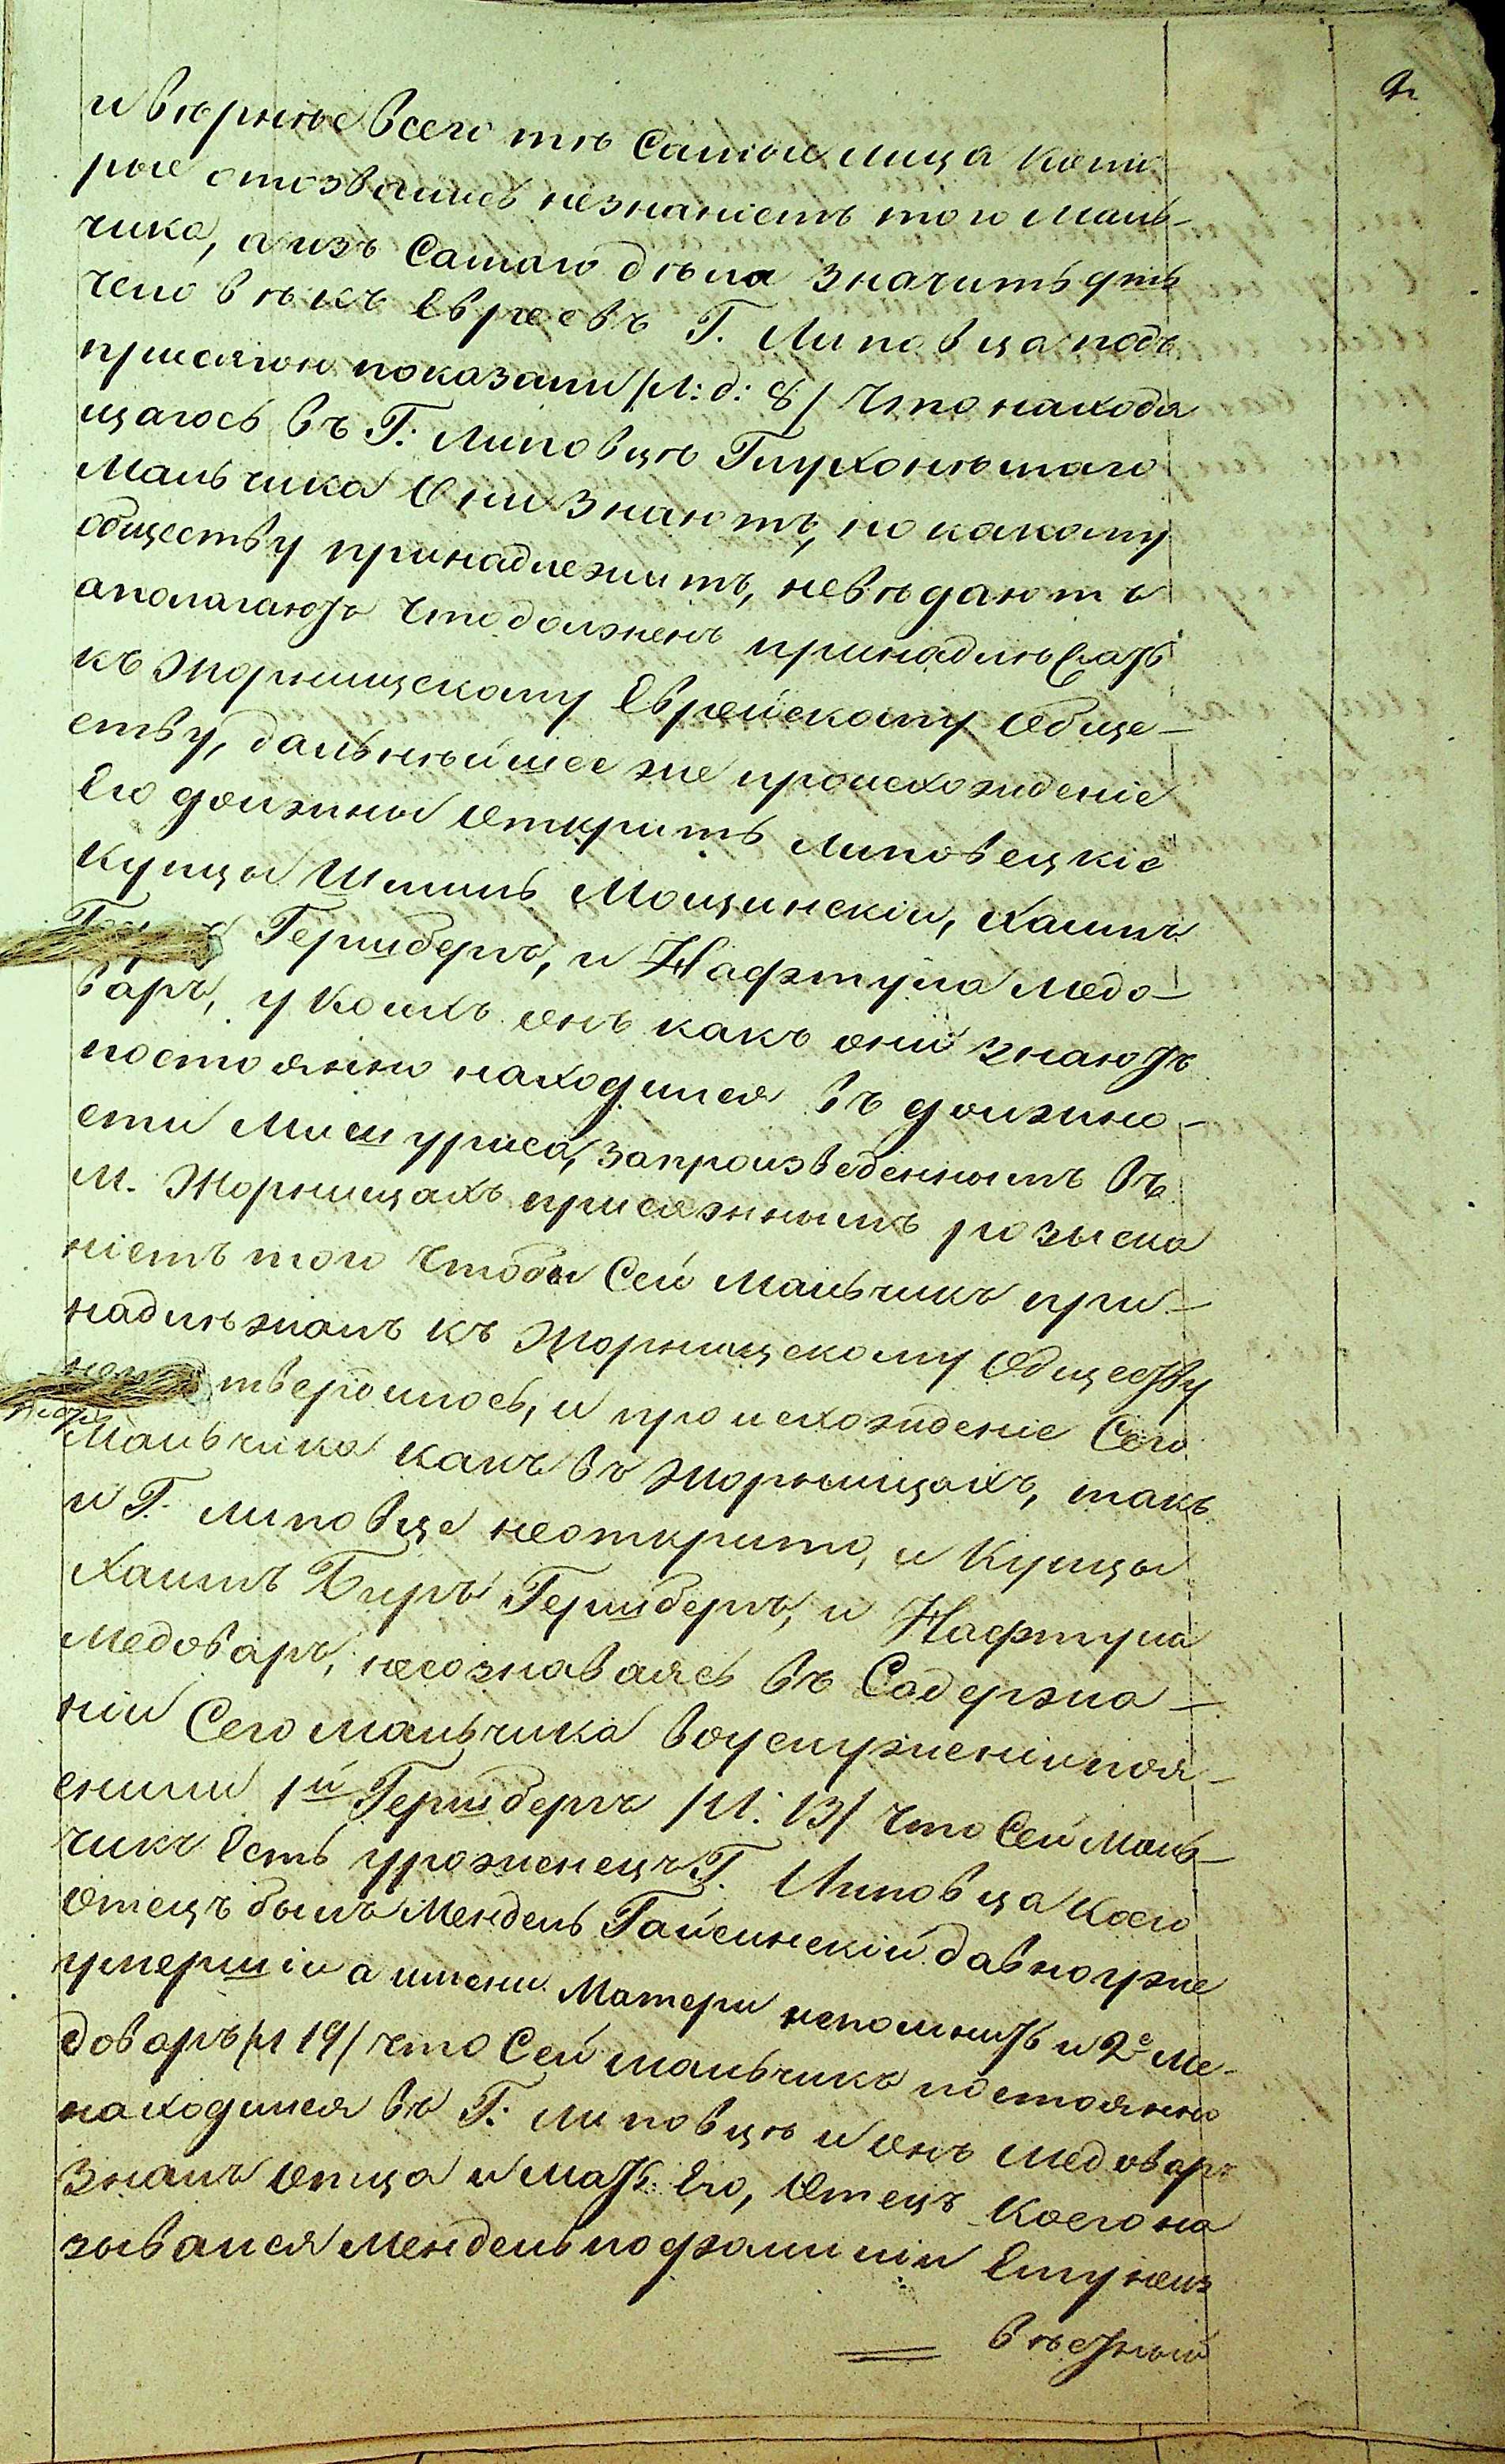 и вѣрнѣе всего тѣ самые лица кото
рые отозвались незнаніемъ того маль-
чика, а изъ самаго дѣла значитъ
человѣкъ Евреевъ Г. Липовца подъ
присягою показали /л: д: 8/ что находя
щагось въ Г: Липовцѣ Глухонѣмаго
Мальчика они знаютъ, но какому
обществу принадлежитъ, невѣдаютъ
а полагаютъ что долженъ принадлѣжать
къ Жорнищскому Еврейскому Обще-
ству, дальнѣйшее же происхожденіе
Его должны открить Липовецкіе
Купцы Шмиль Мощинскій, Хаимъ
Гершберъ, и Нафтула Медо-
варъ, у коихъ онъ какъ они знаютъ
постоянно находился въ должно-
сти Мишуриса, запроизведеннымъ въ
М. Жорнищахъ присяжнымъ розыска
ніемъ того чтобы Сей Мальчикъ при-
надлѣжалъ къ Жорнищскому Обществу
твердилось, и происхожденіе Сего
Мальчика какъ въ Жорнищахъ, такъ
и Г. Липовце неоткрито, и Купцы
Хаимъ Беръ Гершберъ, и Нафтула
Медоваръ, несознаваясь въ Содержа-
ніи Сего мальчика воуслуженіи поя-
снили 1й Гершберъ /л: 13/ что Сей Маль-
чикъ Есть уроженецъ Г. Липовца Коего
Отецъ былъ Мендель Гайсинскій давно уже
умершій а имени Матери непомнитъ и 2е Ме-
доваръ /л 19/ что Сей мальчикъ постоянно
находился въ Г: Липовцѣ и онъ Медоваръ
Зналъ Отца и Мать Его, Отецъ Коего на
зывался Мендель по фамиліи Ему неиз
вѣстный